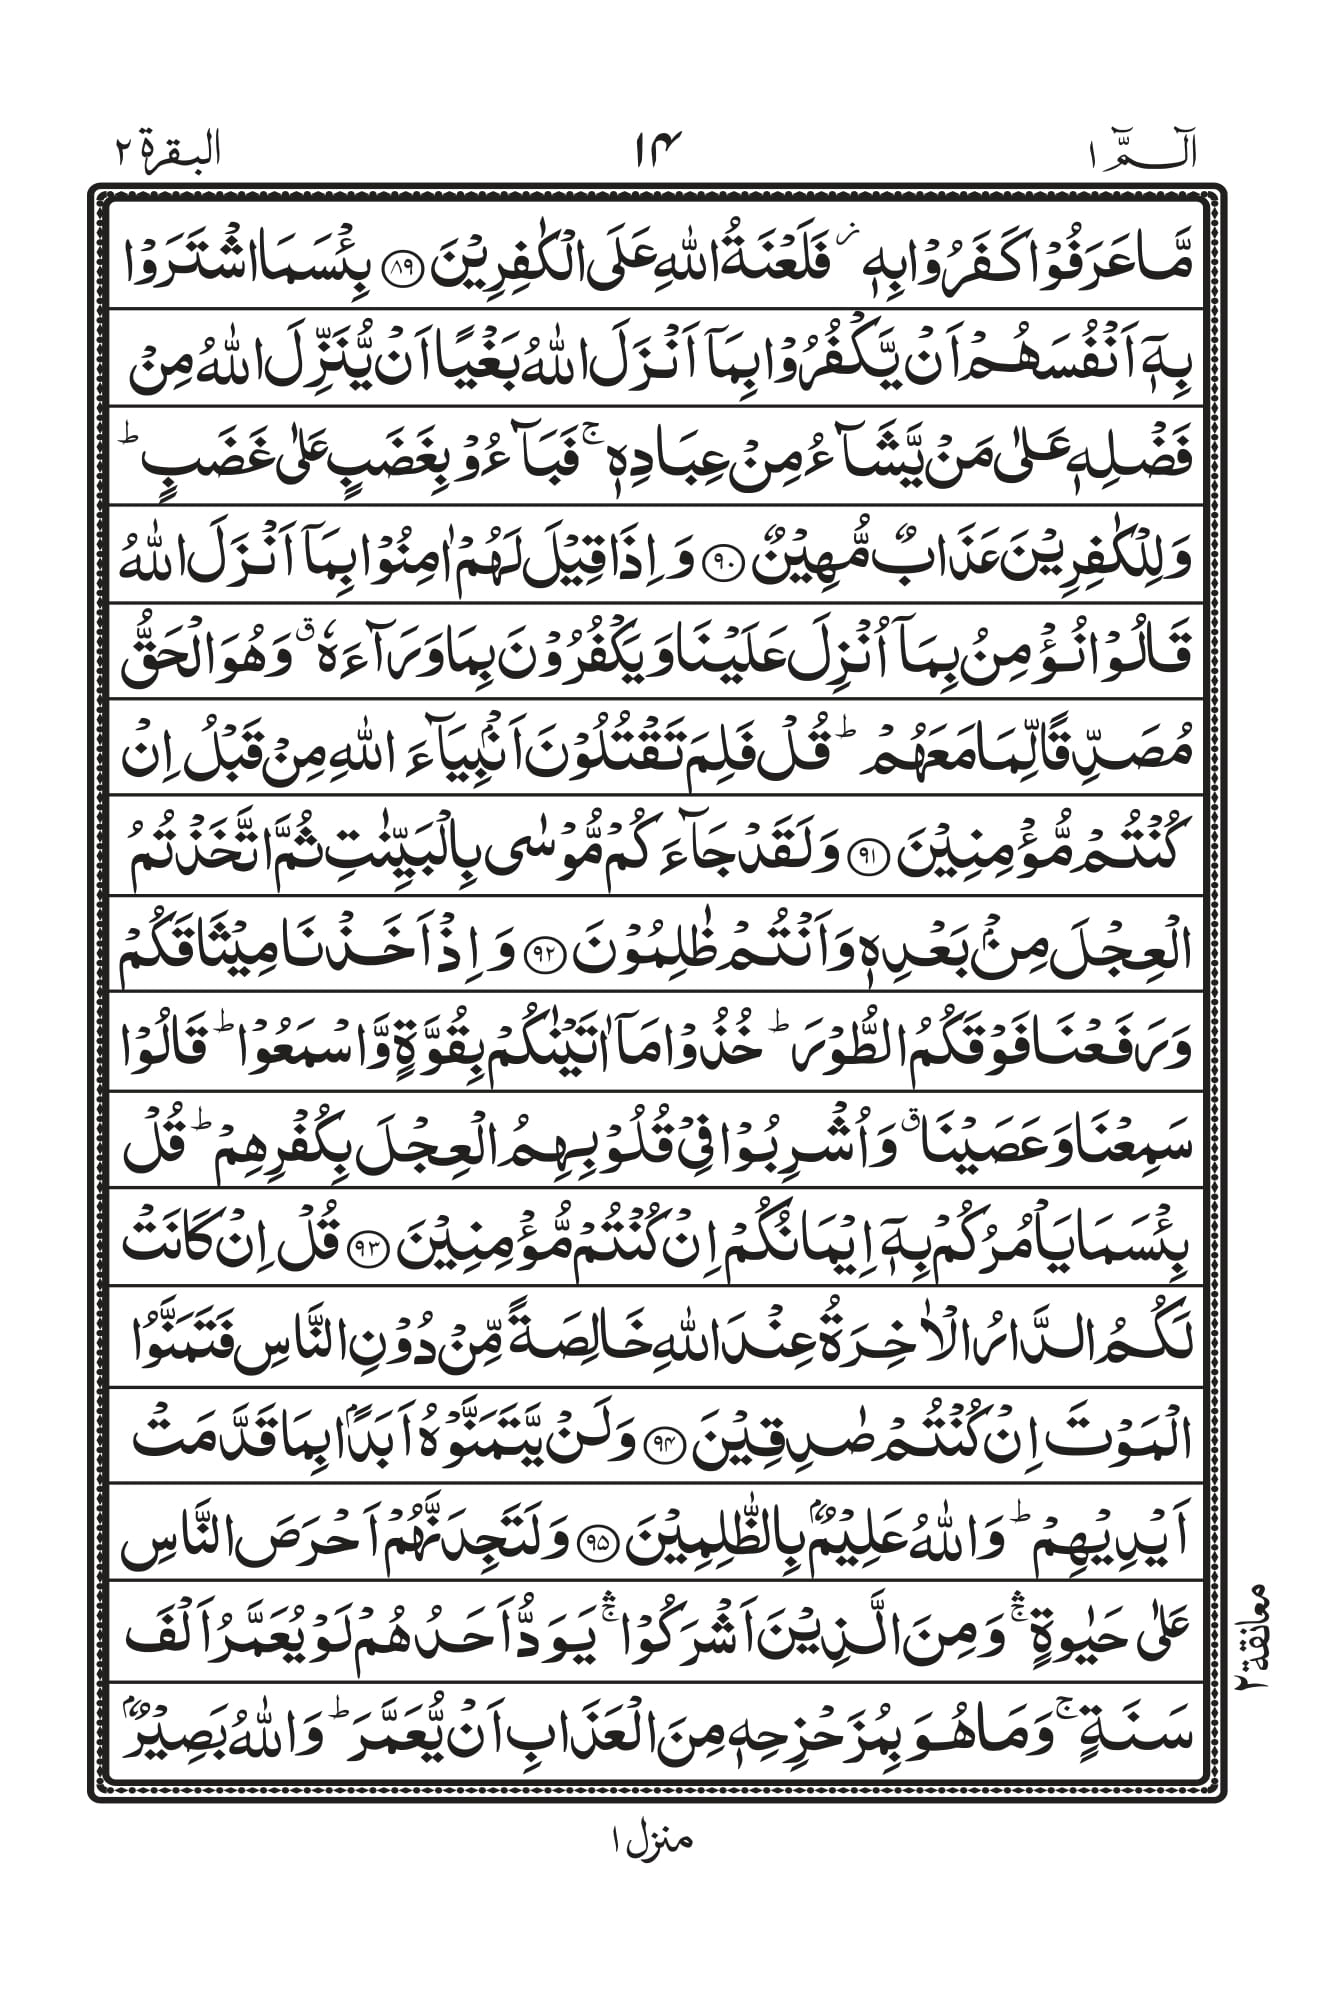 الٓـمّٓ ١ ١٤ البقرة ٢
مَّا عَرَفُوْا كَفَرُوْا بِهٖ ز فَلَعْنَةُ اللّٰهِ عَلَى الْكٰفِرِيْنَ ۝٨٩ بِئْسَمَا اشْتَرَوْا
بِهٖٓ اَنْفُسَهُمْ اَنْ يَّكْفُرُوْا بِمَآ اَنْزَلَ اللّٰهُ بَغْيًا اَنْ يُّنَزِّلَ اللّٰهُ مِنْ
فَضْلِهٖ عَلٰى مَنْ يَّشَآءُ مِنْ عِبَادِهٖ ۚ فَبَآءُوْ بِغَضَبٍ عَلٰى غَضَبٍ ؕ
وَلِلْكٰفِرِيْنَ عَذَابٌ مُّهِيْنٌ ۝٩٠ وَاِذَا قِيْلَ لَهُمْ اٰمِنُوْا بِمَآ اَنْزَلَ اللّٰهُ
قَالُوْا نُؤْمِنُ بِمَآ اُنْزِلَ عَلَيْنَا وَيَكْفُرُوْنَ بِمَا وَرَآءَهٗ ق وَهُوَ الْحَقُّ
مُصَدِّقًا لِّمَا مَعَهُمْ ؕ قُلْ فَلِمَ تَقْتُلُوْنَ اَنْۢبِيَآءَ اللّٰهِ مِنْ قَبْلُ اِنْ
كُنْتُمْ مُّؤْمِنِيْنَ ۝٩١ وَلَقَدْ جَآءَكُمْ مُّوْسٰى بِالْبَيِّنٰتِ ثُمَّ اتَّخَذْتُمُ
الْعِجْلَ مِنْۢ بَعْدِهٖ وَاَنْتُمْ ظٰلِمُوْنَ ۝٩٢ وَاِذْ اَخَذْنَا مِيْثَاقَكُمْ
وَرَفَعْنَا فَوْقَكُمُ الطُّوْرَ ؕ خُذُوْا مَآ اٰتَيْنٰكُمْ بِقُوَّةٍ وَّاسْمَعُوْا ؕ قَالُوْا
سَمِعْنَا وَعَصَيْنَا ق وَاُشْرِبُوْا فِيْ قُلُوْبِهِمُ الْعِجْلَ بِكُفْرِهِمْ ؕ قُلْ
بِئْسَمَا يَاْمُرُكُمْ بِهٖٓ اِيْمَانُكُمْ اِنْ كُنْتُمْ مُّؤْمِنِيْنَ ۝٩٣ قُلْ اِنْ كَانَتْ
لَكُمُ الدَّارُ الْاٰخِرَةُ عِنْدَ اللّٰهِ خَالِصَةً مِّنْ دُوْنِ النَّاسِ فَتَمَنَّوُا
الْمَوْتَ اِنْ كُنْتُمْ صٰدِقِيْنَ ۝٩٤ وَلَنْ يَّتَمَنَّوْهُ اَبَدًۢا بِمَا قَدَّمَتْ
اَيْدِيْهِمْ ؕ وَاللّٰهُ عَلِيْمٌۢ بِالظّٰلِمِيْنَ ۝٩٥ وَلَتَجِدَنَّهُمْ اَحْرَصَ النَّاسِ
عَلٰى حَيٰوةٍ ۛۚ وَمِنَ الَّذِيْنَ اَشْرَكُوْا ۛۚ يَوَدُّ اَحَدُهُمْ لَوْ يُعَمَّرُ اَلْفَ
سَنَةٍ ۚ وَمَا هُوَ بِمُزَحْزِحِهٖ مِنَ الْعَذَابِ اَنْ يُّعَمَّرَ ؕ وَاللّٰهُ بَصِيْرٌۢ
معانقة ٢
منزل ١